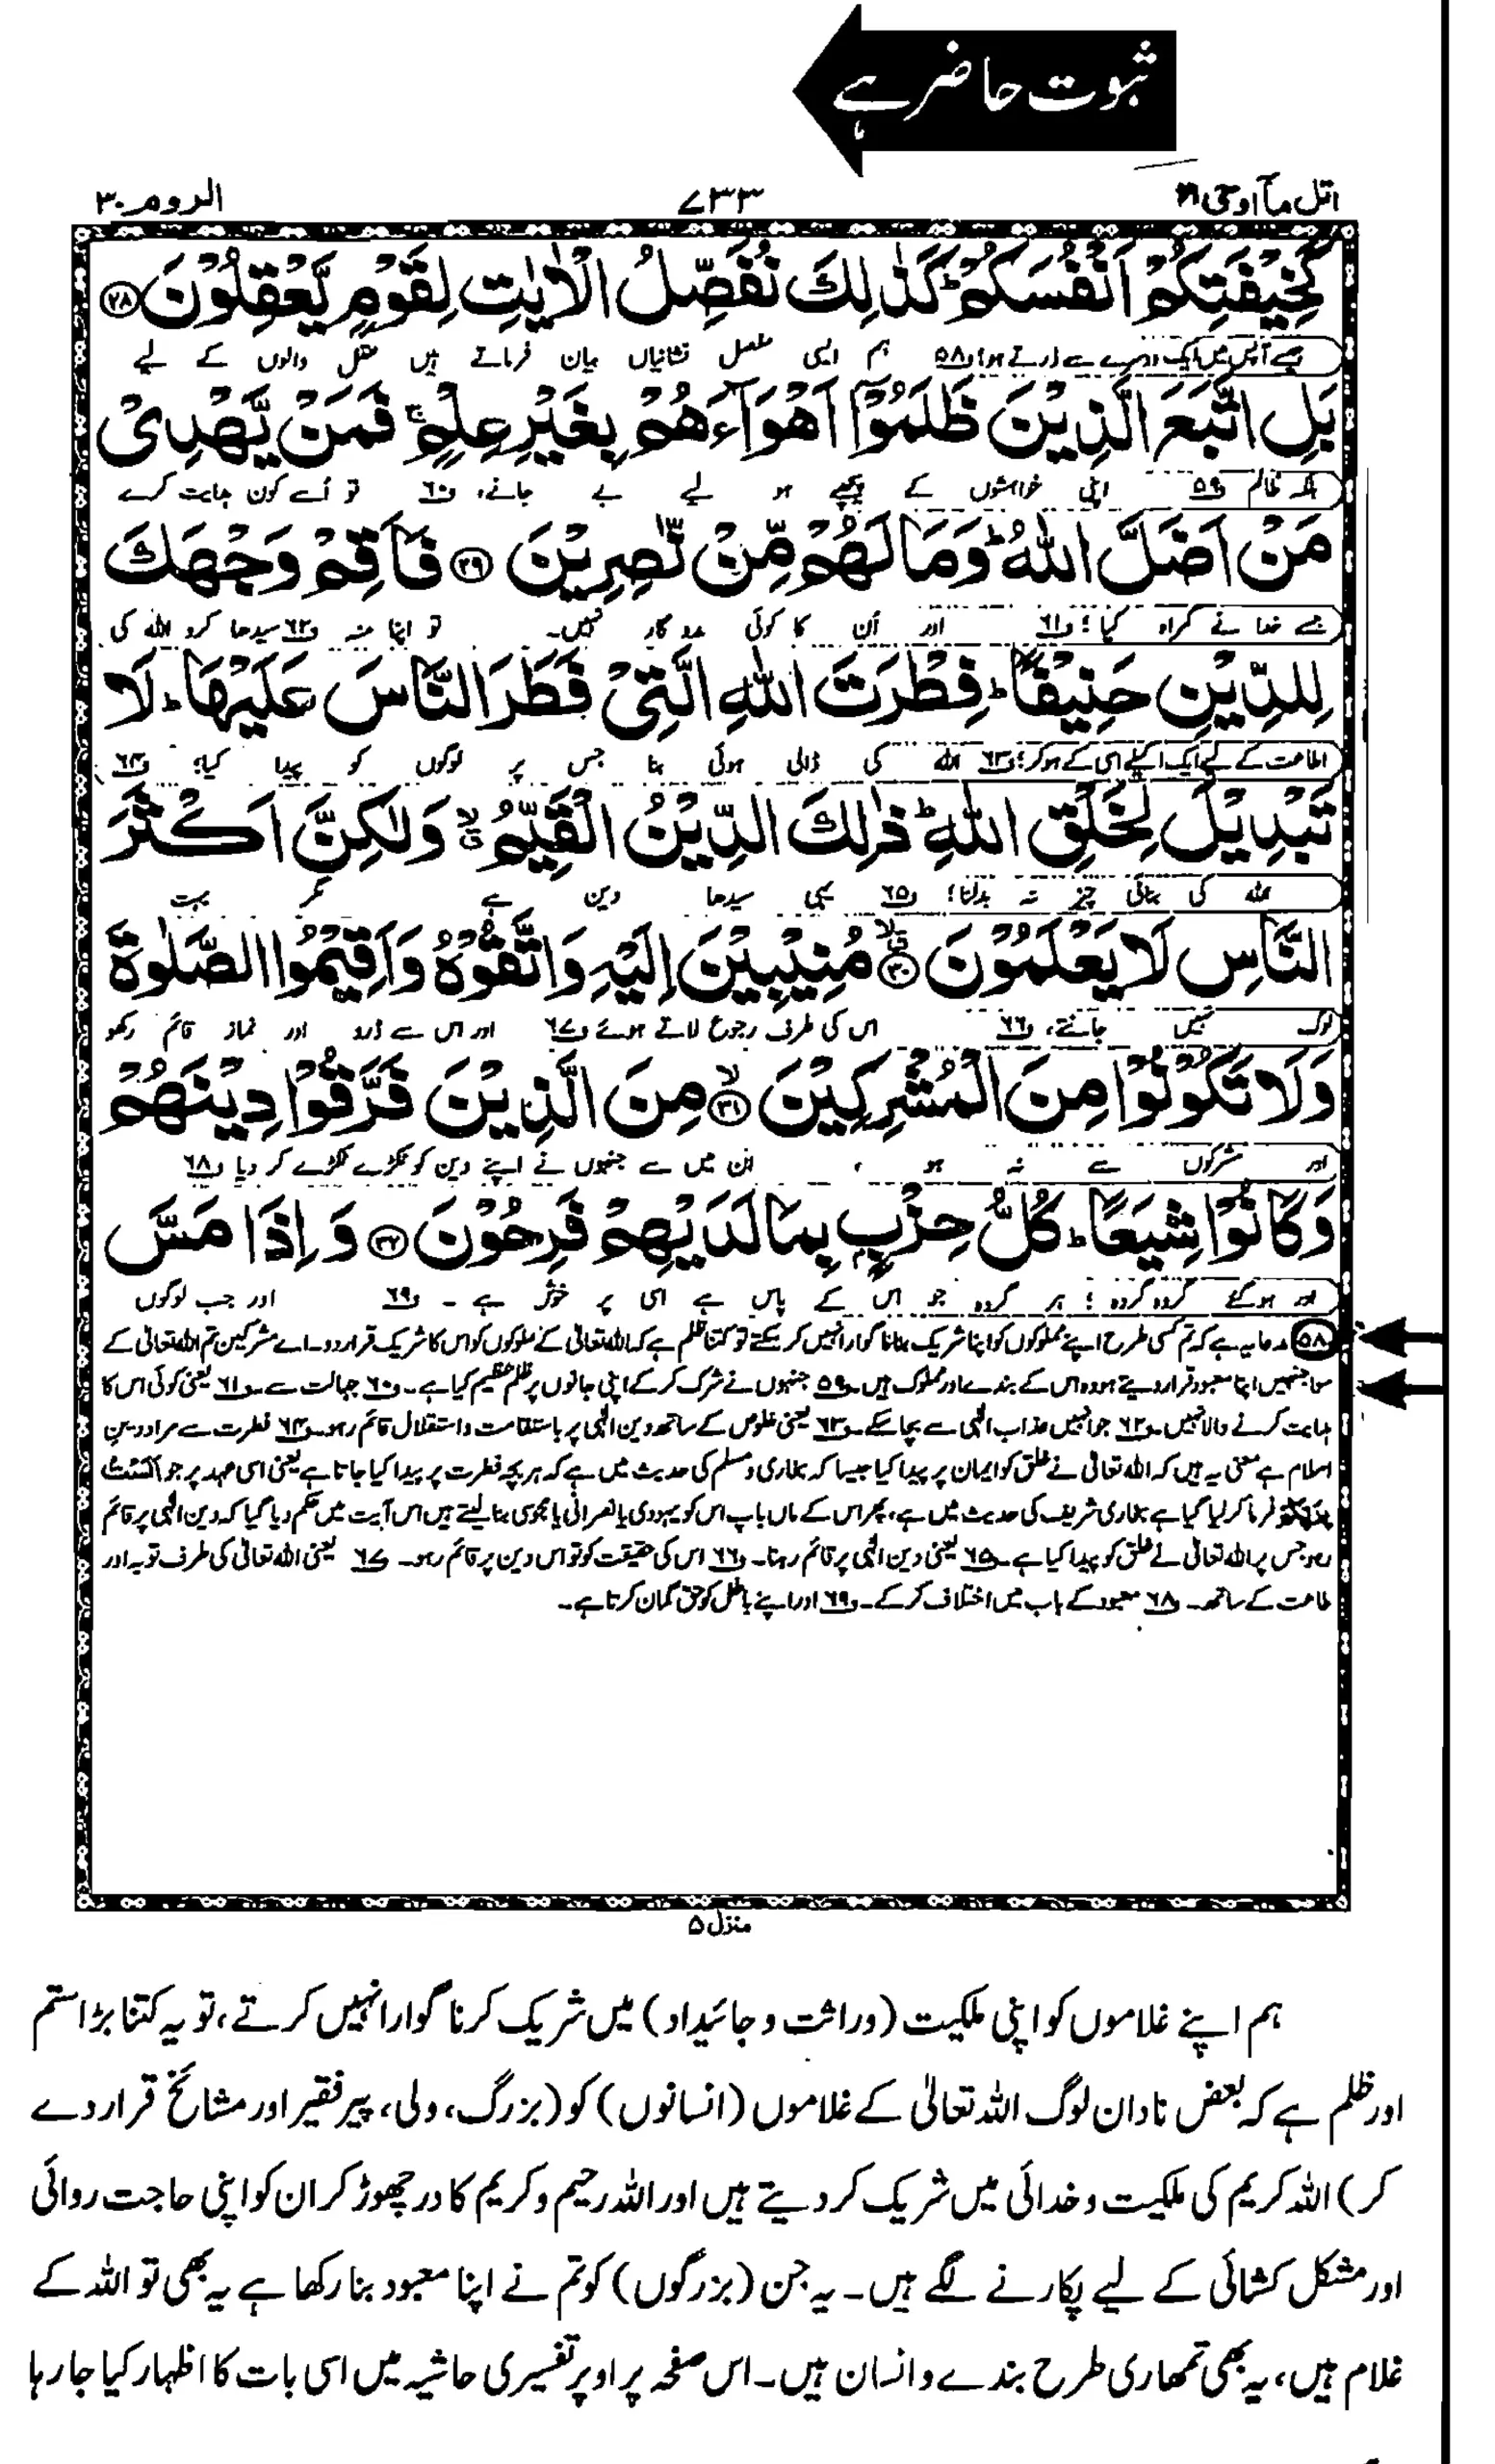 ثبوت حاضر ہے
اتل مآ اوحی ۲۱
۷۳۳
الروم ۳۰
كَخِیْفَتِكُمْ اَنْفُسَكُمْؕ كَذٰلِكَ نُفَصِّلُ الْاٰیٰتِ لِقَوْمٍ یَّعْقِلُوْنَ ﴿۲۸﴾
جیسے آپس میں ایک دوسرے سے ڈرتے ہو؛ ف۵۸ ہم ایسی مفصل نشانیاں بیان فرماتے ہیں عقل والوں کے لیے
بَلِ اتَّبَعَ الَّذِیْنَ ظَلَمُوْۤا اَهْوَآءَهُمْ بِغَیْرِ عِلْمٍۚ فَمَنْ یَّهْدِیْ
بلکہ ظالم ف۵۹ اپنی خواہشوں کے پیچھے ہو لیے بے جانے، ف۶۰ تو اُسے کون ہدایت کرے
مَنْ اَضَلَّ اللّٰهُؕ وَمَا لَهُمْ مِّنْ نّٰصِرِیْنَ ﴿۲۹﴾ فَاَقِمْ وَجْهَكَ
جسے خدا نے گمراہ کیا؛ ف۶۱ اور اُن کا کوئی مددگار نہیں۔ تو اپنا منہ ف۶۲ سیدھا کرو اللہ کی
لِلدِّیْنِ حَنِیْفًاؕ فِطْرَتَ اللّٰهِ الَّتِیْ فَطَرَ النَّاسَ عَلَیْهَاؕ لَا
اطاعت کے لیے ایک اکیلے اسی کے ہوکر؛ ف۶۳ اللہ کی ڈالی ہوئی بنا جس پر لوگوں کو پیدا کیا؛ ف۶۴
تَبْدِیْلَ لِخَلْقِ اللّٰهِؕ ذٰلِكَ الدِّیْنُ الْقَیِّمُۙ وَلٰكِنَّ اَكْثَرَ
اللہ کی بنائی چیز نہ بدلنا؛ ف۶۵ یہی سیدھا دین ہے مگر بہت
النَّاسِ لَا یَعْلَمُوْنَ ﴿۳۰﴾ مُنِیْبِیْنَ اِلَیْهِ وَاتَّقُوْهُ وَاَقِیْمُوا الصَّلٰوةَ
لوگ نہیں جانتے، ف۶۶ اس کی طرف رجوع لاتے ہوئے ف۶۷ اور اس سے ڈرو اور نماز قائم رکھو
وَلَا تَكُوْنُوْا مِنَ الْمُشْرِكِیْنَ ﴿۳۱﴾ مِنَ الَّذِیْنَ فَرَّقُوْا دِیْنَهُمْ
اور مشرکوں سے نہ ہو، اُن میں سے جنہوں نے اپنے دین کو ٹکڑے ٹکڑے کر دیا ف۶۸
وَكَانُوْا شِیَعًاؕ كُلُّ حِزْبٍۭ بِمَا لَدَیْهِمْ فَرِحُوْنَ ﴿۳۲﴾ وَاِذَا مَسَّ
اور ہوگئے گروہ گروہ؛ ہر گروہ جو اس کے پاس ہے اسی پر خوش ہے۔ ف۶۹ اور جب لوگوں
۵۸ مدعا یہ ہے کہ تم کسی طرح اپنے مملوکوں کو اپنا شریک بنانا گوارا نہیں کر سکتے تو کتنا ظلم ہے کہ اللہ تعالیٰ کے مملوکوں کو اس کا شریک قرار دو۔ اے مشرکین تم اللہ تعالیٰ کے
سوا جنہیں اپنا معبود قرار دیتے ہو وہ اس کے بندے اور مملوک ہیں۔ ف۵۹ جنہوں نے شرک کر کے اپنی جانوں پر ظلم عظیم کیا ہے۔ ف۶۰ جہالت سے۔ ف۶۱ یعنی کوئی اس کا
ہدایت کرنے والا نہیں۔ ف۶۲ جو انہیں عذاب الٰہی سے بچا سکے۔ ف۶۳ یعنی خلوص کے ساتھ دین الٰہی پر باستقامت و استقلال قائم رہو۔ ف۶۴ فطرت سے مراد دین
اسلام ہے معنی یہ ہیں کہ اللہ تعالیٰ نے خلق کو ایمان پر پیدا کیا جیسا کہ بخاری و مسلم کی حدیث میں ہے کہ ہر بچہ فطرت پر پیدا کیا جاتا ہے یعنی اسی عہد پر جو اَلَسْتُ
بِرَبِّكُمْ فرما کر لیا گیا ہے بخاری شریف کی حدیث میں ہے، پھر اس کے ماں باپ اس کو یہودی یا نصرانی یا مجوسی بنا لیتے ہیں اس آیت میں حکم دیا گیا کہ دین الٰہی پر قائم
رہو جس پر اللہ تعالیٰ نے خلق کو پیدا کیا ہے۔ ف۶۵ یعنی دین الٰہی پر قائم رہنا۔ ف۶۶ اس کی حقیقت کو تو اس دین پر قائم رہو۔ ف۶۷ یعنی اللہ تعالیٰ کی طرف توبہ اور
طاعت کے ساتھ۔ ف۶۸ معبود کے باب میں اختلاف کر کے۔ ف۶۹ اور اپنے باطل کو حق گمان کرتا ہے۔
منزل ۵
ہم اپنے غلاموں کو اپنی ملکیت (وراثت و جائیداد) میں شریک کرنا گوارا نہیں کرتے، تو یہ کتنا بڑا ستم
اور ظلم ہے کہ بعض نادان لوگ اللہ تعالیٰ کے غلاموں (انسانوں) کو (بزرگ، ولی، پیر فقیر اور مشائخ قرار دے
کر) اللہ کریم کی ملکیت و خدائی میں شریک کر دیتے ہیں اور اللہ رحیم و کریم کا در چھوڑ کر ان کو اپنی حاجت روائی
اور مشکل کشائی کے لیے پکارنے لگے ہیں۔ یہ جن (بزرگوں) کو تم نے اپنا معبود بنا رکھا ہے یہ بھی تو اللہ کے
غلام ہیں، یہ بھی تمھاری طرح بندے و انسان ہیں۔ اس صفحہ پر اوپر تفسیری حاشیہ میں اسی بات کا اظہار کیا جا رہا